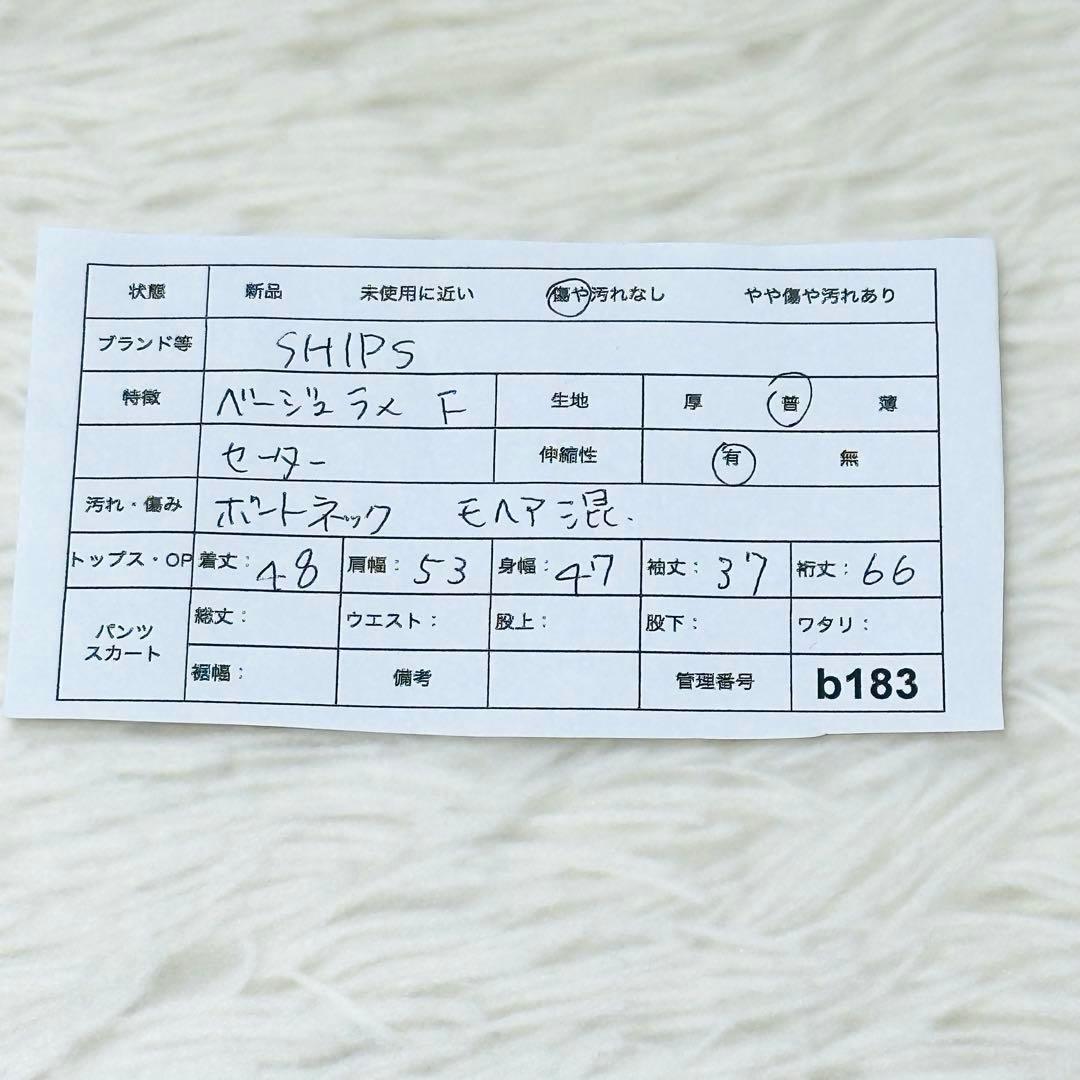 状態 新品 未使用に近い 傷や汚れなし やや傷や汚れあり
ブランド等 SHIPS
特徴 ベージュ ラメ F 生地 厚 普 薄
セーター 伸縮性 有 無
汚れ・傷み ボートネック モヘア混.
トップス・OP 着丈: 48 肩幅: 53 身幅: 47 袖丈: 37 裄丈: 66
パンツ スカート 総丈: ウエスト: 股上: 股下: ワタリ:
裾幅: 備考 管理番号 b183